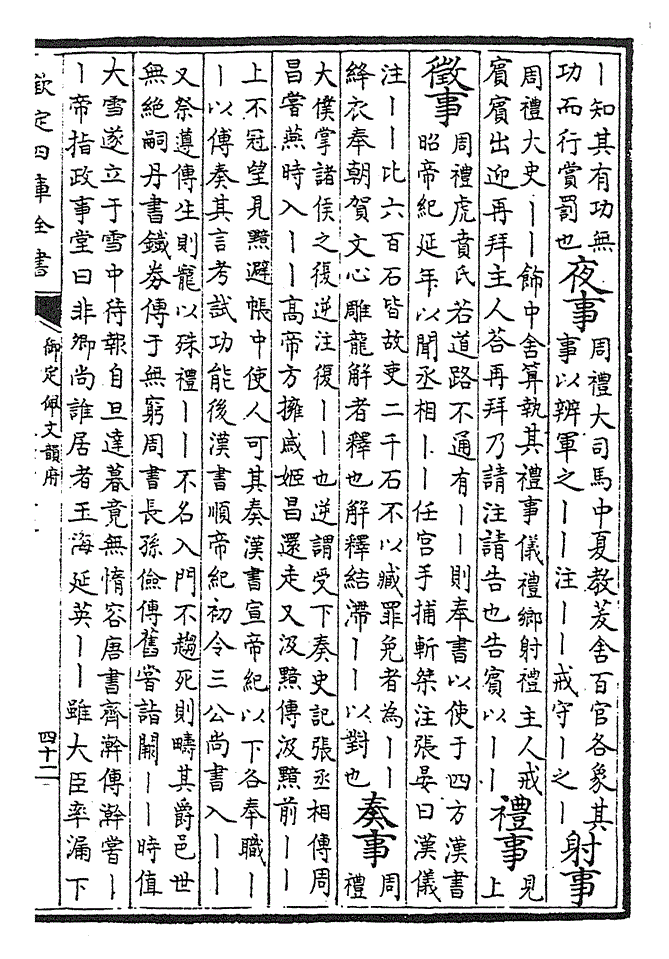 ｜知其有功無
功而行賞罰也
夜事
周禮大司馬中夏教茇舍百官各象其
事以辨軍之｜｜注｜｜戒守｜之｜
射事
周禮大史｜｜飾中舍算執其禮事儀禮鄉射禮主人戒
賓賓出迎再拜主人荅再拜乃請注請告也告賓以｜｜
禮事
見
上
徵事
周禮虎賁氏若道路不通有｜｜則奉書以使于四方漢書
昭帝紀延年以聞丞相｜｜任宫手捕斬桀注張晏曰漢儀
注｜｜比六百石皆故吏二千石不以贓罪免者為｜｜
絳衣奉朝賀文心雕龍解者釋也解釋結滯｜｜以對也
奏事
周
禮
大僕掌諸侯之復逆注復｜｜也逆謂受下奏史記張丞相傳周
昌嘗燕時入｜｜高帝方擁戚姬昌還走又汲黯傳汲黯前｜｜
上不冠望見黯避帳中使人可其奏漢書宣帝紀以下各奉職｜
｜以傅奏其言考試功能後漢書順帝紀初令三公尚書入｜｜
又祭遵傳生則寵以殊禮｜｜不名入門不趨死則疇其爵邑世
無絶嗣丹書鐵券傳于無窮周書長孫儉傳舊嘗詣闕｜｜時值
大雪遂立于雪中待報自旦達暮竟無惰容唐書齊澣傳澣嘗｜
｜帝指政事堂曰非卿尚誰居者玉海延英｜｜雖大臣率漏下
欽定四庫全書
御定佩文韻府
四十二